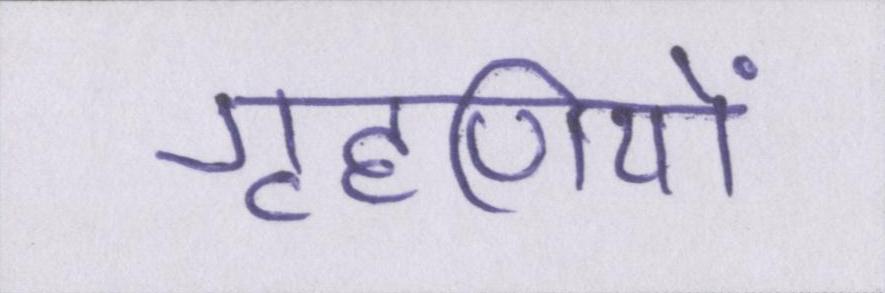 गृहणियों